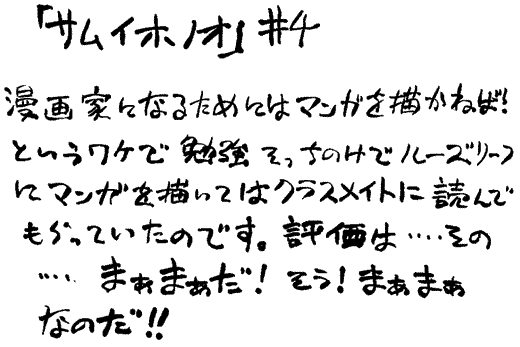 「サムイホノオ」#4
漫画家になるためにはマンガを描かねば!
というワケで勉強そっちのけでルーズリーフ
にマンガを描いてはクラスメイトに読んで
もらっていたのです。評価は‥‥その
‥‥ まぁまぁだ! そう! まぁまぁ
なのだ!!